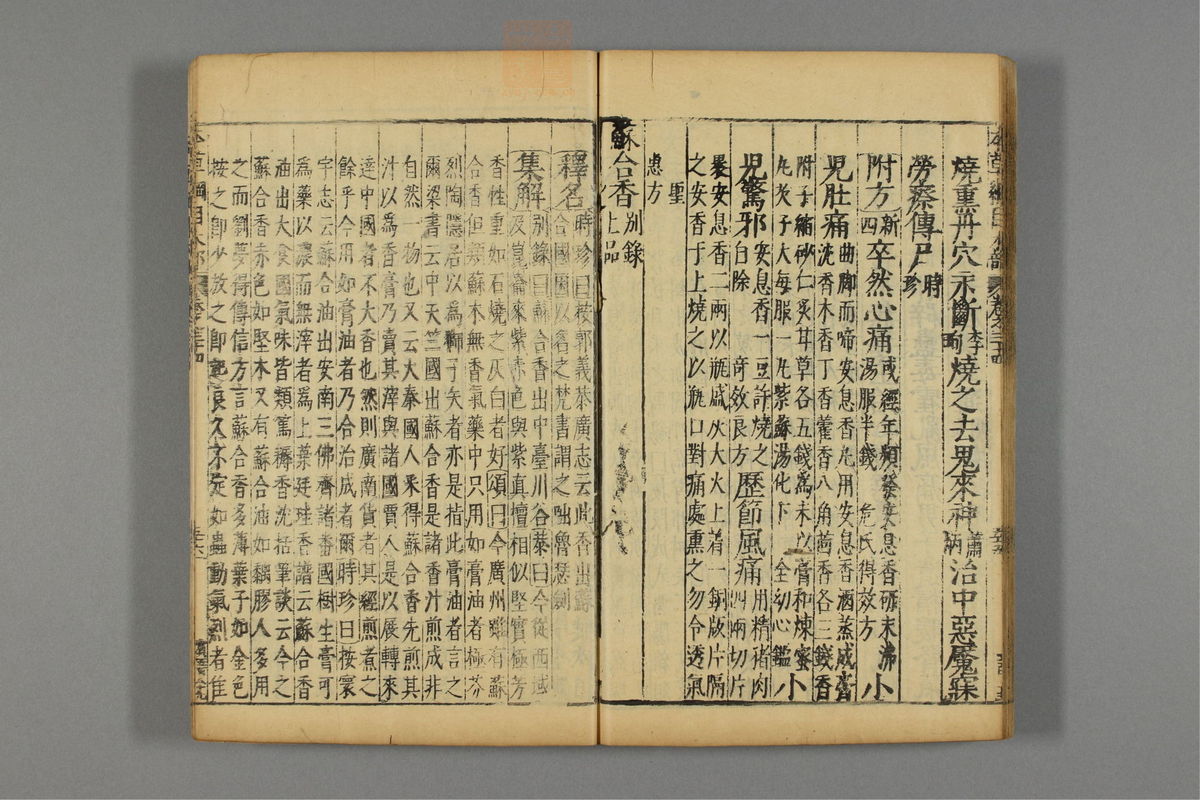 燒熏丹穴永斷李珣燒之去鬼來神蕭炳治中惡魘寐
勞瘵傳尸時珍
附方新四卒然心痛或經年頻發安息香研末沸湯服半錢危氏得效方小
兒肚痛曲脚而啼安息香丸用安息香酒蒸成膏沈香木香丁香藿香八角茴香各三錢香
附子縮砂仁炙甘草各五錢爲末以膏和煉蜜丸芡子大每服一丸紫蘇湯化下全幼心鑑小
兒驚邪安息香一豆許燒之自除奇效良方歷節風痛用精猪肉四兩切片
裹安息香二兩以瓶盛灰大火上着一銅版片隔
之安香于上燒之以瓶口對痛處熏之勿令透氣
聖惠方
蘇合香別錄上品
釋名時珍曰按郭義恭廣志云此香出蘇合國因以名之梵書謂之咄魯瑟劍
集解別錄曰蘇合香出中臺川谷恭曰今從西域及崑崙來紫赤色與紫真檀相似堅實極芳
香性重如石燒之灰白者好頌曰今廣州雖有蘇
合香但類蘇木無香氣藥中只用如膏油者極芬
烈陶隱居以爲獅子矢者亦是指此膏油者言之
爾梁書云中天竺國出蘇合香是諸香汁煎成非
自然一物也又云大秦國人采得蘇合香先煎其
汁以爲香膏乃賣其滓與諸國賈人是以展轉來
達中國者不大香也然則廣南貨者其經煎煮之
餘乎今用如膏油者乃合治成者爾時珍曰按寰
宇志云蘇合油出安南三佛齊諸番國樹生膏可
爲藥以濃而無滓者爲上葉廷珪香譜云蘇合香
油出大食國氣味皆類篤耨香沈括筆談云今之
蘇合香赤色如堅木又有蘇合油如黐膠人多用
之而劉夢得傳信方言蘇合香多薄葉子如金色
按之即少放之即起良久不定如蟲動氣烈者佳